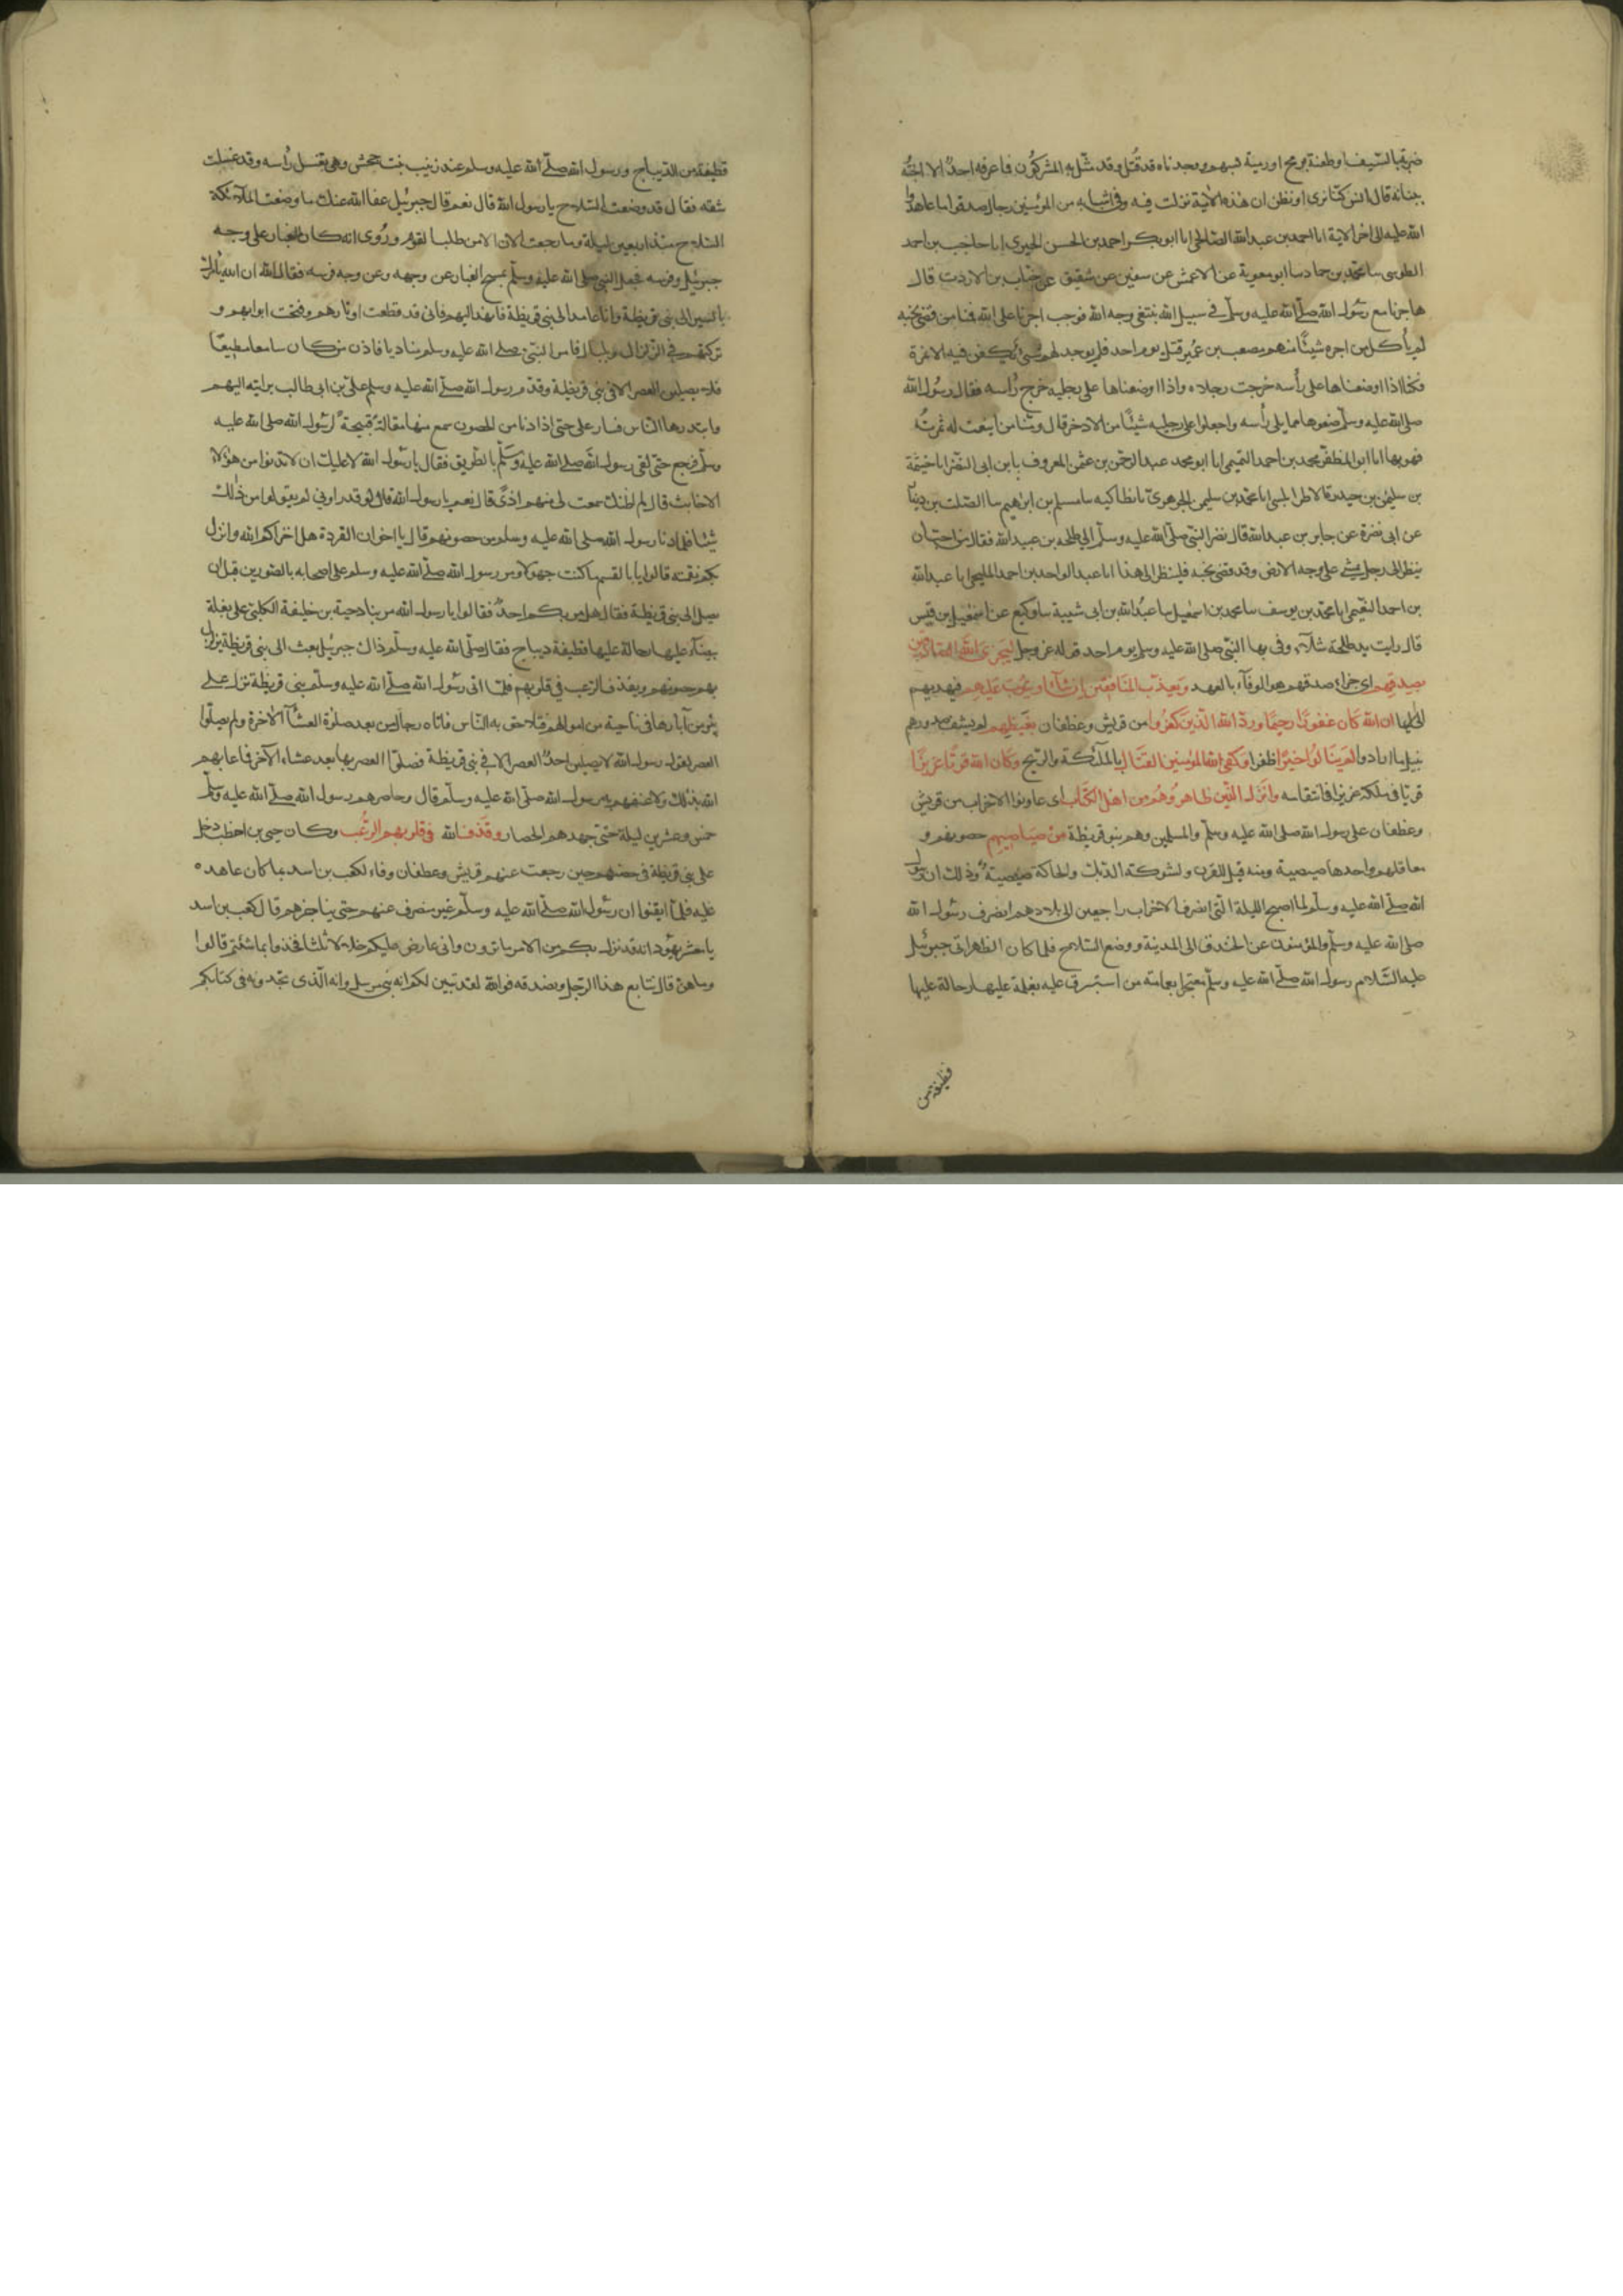 ضربة بالسيف او طعنة برمح او رمية بسهم ووجدناه قد قُتل وقد مثّل به المشركون فما عرفه احدٌ الا اخته
ببنانه قال انس كنّا نرى او نظن ان هذه الآية نزلت فيه وفى اشباهه من المؤمنين رجال صدقوا ما عاهدوا
الله عليه الى اخر الاية انا احمد بن عبد الله الصالحى انا ابو بكر احمد بن الحسن الحيرى انا حاجب بن احمد
الطوسى سا محمد بن حماد سا ابو معوية عن الاعمش عن سفين عن شقيق عن خبّاب بن الارت قال
هاجرنا مع رسول الله صلّى الله عليه وسلّم فى سبيل الله نبتغى وجه الله فوجب اجرنا على الله فمنا من قضى نحبه
لم يأكل من اجره شيئًا منهم مصعب بن عُمير قتل يوم احد فلم يوجد له شئ يكفن فيه الا نمرة
فكنا اذا وضعناها على رأسه خرجت رجلاه واذا وضعناها على رجليه خرج رأسه فقال رسُول الله
صلى الله عليه وسلّم ضعوها مما يلى رأسه واجعلوا على رجليه شيئًا من الاذخر قال ومنا من اينعت له ثمرتُه
فهو يهدبها انا ابو المظفر محمد بن احمد التميمى انا ابو محمد عبد الرحمن بن عثمن المعروف بابن ابى النصر انا خيثمة
بن سليمن بن حيدرة الاطرابلسى انا محمد بن سليمن الجوهرىّ بانطاكيه سا مسلم بن ابراهيم سا الصلت بن دينار
عن ابى نضرة عن جابر بن عبد الله قال نظر النبى صلّى الله عليه وسلّم الى طلحه بن عبيد الله فقال من احب ان
ينظر الى رجل يمشى على وجه الارض وقد قضى نحبه فلينظر الى هذا انا عبد الواحد بن احمد المليحى انا عبد الله
بن احمد النعيمى انا محمد بن يوسف سا محمد بن اسمعيل سا عبُد الله بن ابى شيبة سا وكيع عن اسمعيل بن قيس
قال رايت يد طلحة شلّاء وقى بها النبّى صلى الله عليه وسلم يوم احد قوله عز وجل ليَجزىَ اللهُ الصَادقينَ
بصدقهم اى جزاء صدقهم هو الوفاء بالعهد ويعذّب المنَافقين ان شآء او يتوبَ عَليهم فيهديهم
الى الايمان ان الله كَان غفورًا رحيمًا وردّ الله الذين كفرُوا من قريش وغطفان بغَيظِهم لم يشف صدورهم
بنيل ما ارادوا لم يَنَالوُا خيرًا ظفرا وكفى الله المؤمنين القتَال بالملئكة والريح وكان الله قويًّا عزيزًا
قويّا فى ملكه عزيزا فى انتقامه وانزلَ الذّين ظاهرُوهُم من اهل الكتَاب اى عاونوا الاحزاب من قريش
وغطفان على رسول الله صلى الله عليه وسلّم والمسلمين وهم بنو قريظة من صَيَاصيهِم حصونهم و
معاقلهم واحدها صيصية ومنه قيل للقرن ولشوكة الديك والحاكة صيصيةٌ وذلك ان رسول
الله صلّى الله عليه وسلّم لما اصبح الليلة التّى انصرف الاحزاب راجعين الى بلادهم انصرف رسُول الله
صلى الله عليه وسلّم والمؤمنون عن الخندق الى المدينة ووضع السّلاح فلما كان الظهر اتى جبرئيل
عليه السّلام رسول الله صلّى الله عليه وسلّم معتجرا بعمامة من استبرق عليه بغلة عليها رحالة عليها
قطيفة من
قطيفة من الديباج ورسول الله صلّى الله عليه وسلم عند زينب بنت جحش وهى تغسل رأسه وقد غسلت
شقه فقال قد وضعت السّلاح يا رسول الله قال نعم قال جبرئيل عفا الله عنك ما وضعت الملآئكة
السّلاح منذ اربعين ليلة وما رجعت الان الا من طلب القوم ورُوى انه كان الغبار على وجه
جبرئيل وفرسه فجعل النبى صلى الله عليه وسلّم يمسح الغبار عن وجهه وعن وجه فرسه فقال ان الله يأمرك
بالسير الى بنى قريظة وانا عامد الى بنى قريظة فانهد اليهم فانى قد قطعت اوتارهم وفتحت ابوابهم و
تركتهم فى الزلزال وبلبال فامر النبىّ صلى الله عليه وسلم مناديا فاذن من كان سامعا مطيعًا
فلا يصلين العصر الا فى بنى قريظة وقدّم رسول الله صلّى الله عليه وسلم علىّ بن ابى طالب برايته اليهم
وابتدرها الناس فسار على حتى اذا دنا من الحصون سمع منها مقالةً قبيحةً لرسُول الله صلى الله عليه
وسلّم فرجع حتى لقى رسول الله صلى الله عليه وسلّم بالطريق فقال يا رسول الله لا عليك ان لا تدنوا من هؤلاء
الاخابث قال لم اظنك سمعت لى منهم اذىً قال نعم يا رسول الله قال لو قد راونى لم يقولوا من ذلك
شيئا فلما دنا رسول الله صلى الله عليه وسلم من حصونهم قال يا اخوان القردة هل اخزاكم الله وانزل
بكم نقمته قالوا يا ابا القسم ما كنت جهولا ومر رسول الله صلّى الله عليه وسلم على اصحابه بالصورين قبل ان
يصل الى بنى قريظة فقال هل مر بكم احدٌ فقالوا يا رسول الله مر بنا دحية بن خليفة الكلبىّ على بغلة
بيضاء عليها رحالة عليها قطيفة ديباج فقال صلّى الله عليه وسلّم ذاك جبرئيل بعث الى بنى قريظة يزلزل
بهم حصونهم ويقذف الرعب فى قلوبهم فلمّا اتى رسُول الله صلّى الله عليه وسلّم بنى قريظة نزل على
بئر من آبارها فى ناحية من اموالهم فتلاحق به النّاس فاتاه رجال من بعد صلوة العشآء الآخرة ولم يصلّوا
العصر لقول رسول الله لا يصلين احدٌ العصر الا فى بنى قريظة فصلّوا العصر بها بعد عشاء الآخر فما عابهم
الله بذلك ولا عنفهم به رسول الله صلّى الله عليه وسلّم قال وحاصرهم رسول الله صلّى الله عليه وسلّم
خمس وعشرين ليلة حتى جهدهم الحصار وقَذف الله فى قلوبهم الرعُب وكان حيى بن اخطب دخل
على بنى قريظة فى حصنهم حين رجعت عنهم قريش وغطفان وفاء لكعب بن اسد بما كان عاهده
عليه فلمّا ايقنوا ان رسُول الله صلّى الله عليه وسلّم غير منصرف عنهم حتى يناجزهم قال كعب بن اسد
يا معشر يهُود انه قد نزل بكم من الامر ما ترون وانى عارض عليكم خلالا ثلثا فخذوا بما شئتم قالوا
وما هنّ قال نتابع هذا الرّجل ونصدقه فوالله لقد تبين لكم انه نبى مرسل وانه الّذى تجدونه فى كتابكم